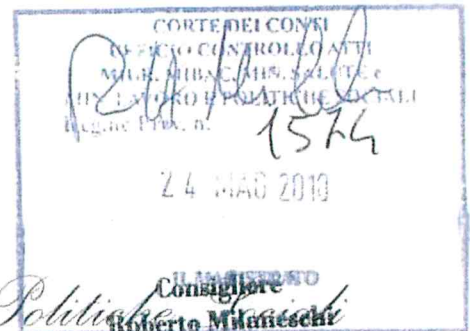 CORTE DEI CONTI
UFFICIO CONTROLLO ATTI
MIUR, MIBAC, MIN. SALUTE e
MIN. LAVORO E POLITICHE SOCIALI
1574
24 MAG 2010
IL MAGISTRATO
Consigliere
Roberto Milaneschi
Politiche Sociali